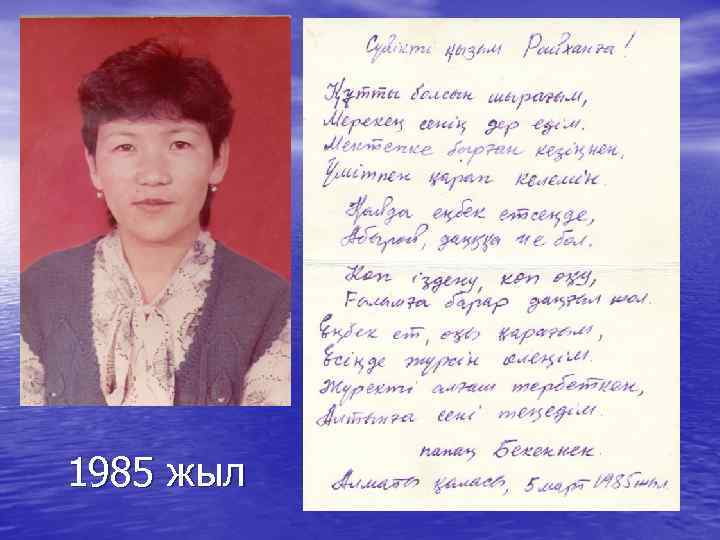 Сүйікті қызым Райханға!
Құтты болсын шырағым,
Мерекең сенің дер едім.
Мектепке барған кезіңнен,
Үмітпен қарап келемін.
Қайда еңбек етсеңде,
Абырой, даңққа ие бол.
Көп іздену, көп оқу,
Ғалымға барар даңғыл жол.
Еңбек ет, оқы қарағым,
Есіңде жүрсін өлеңім.
Жүректі алғаш тербеткен,
Алтынға сені теңедім.
папаң Бекеннен.
Алматы қаласы, 5 март 1985 жыл.
1985 жыл